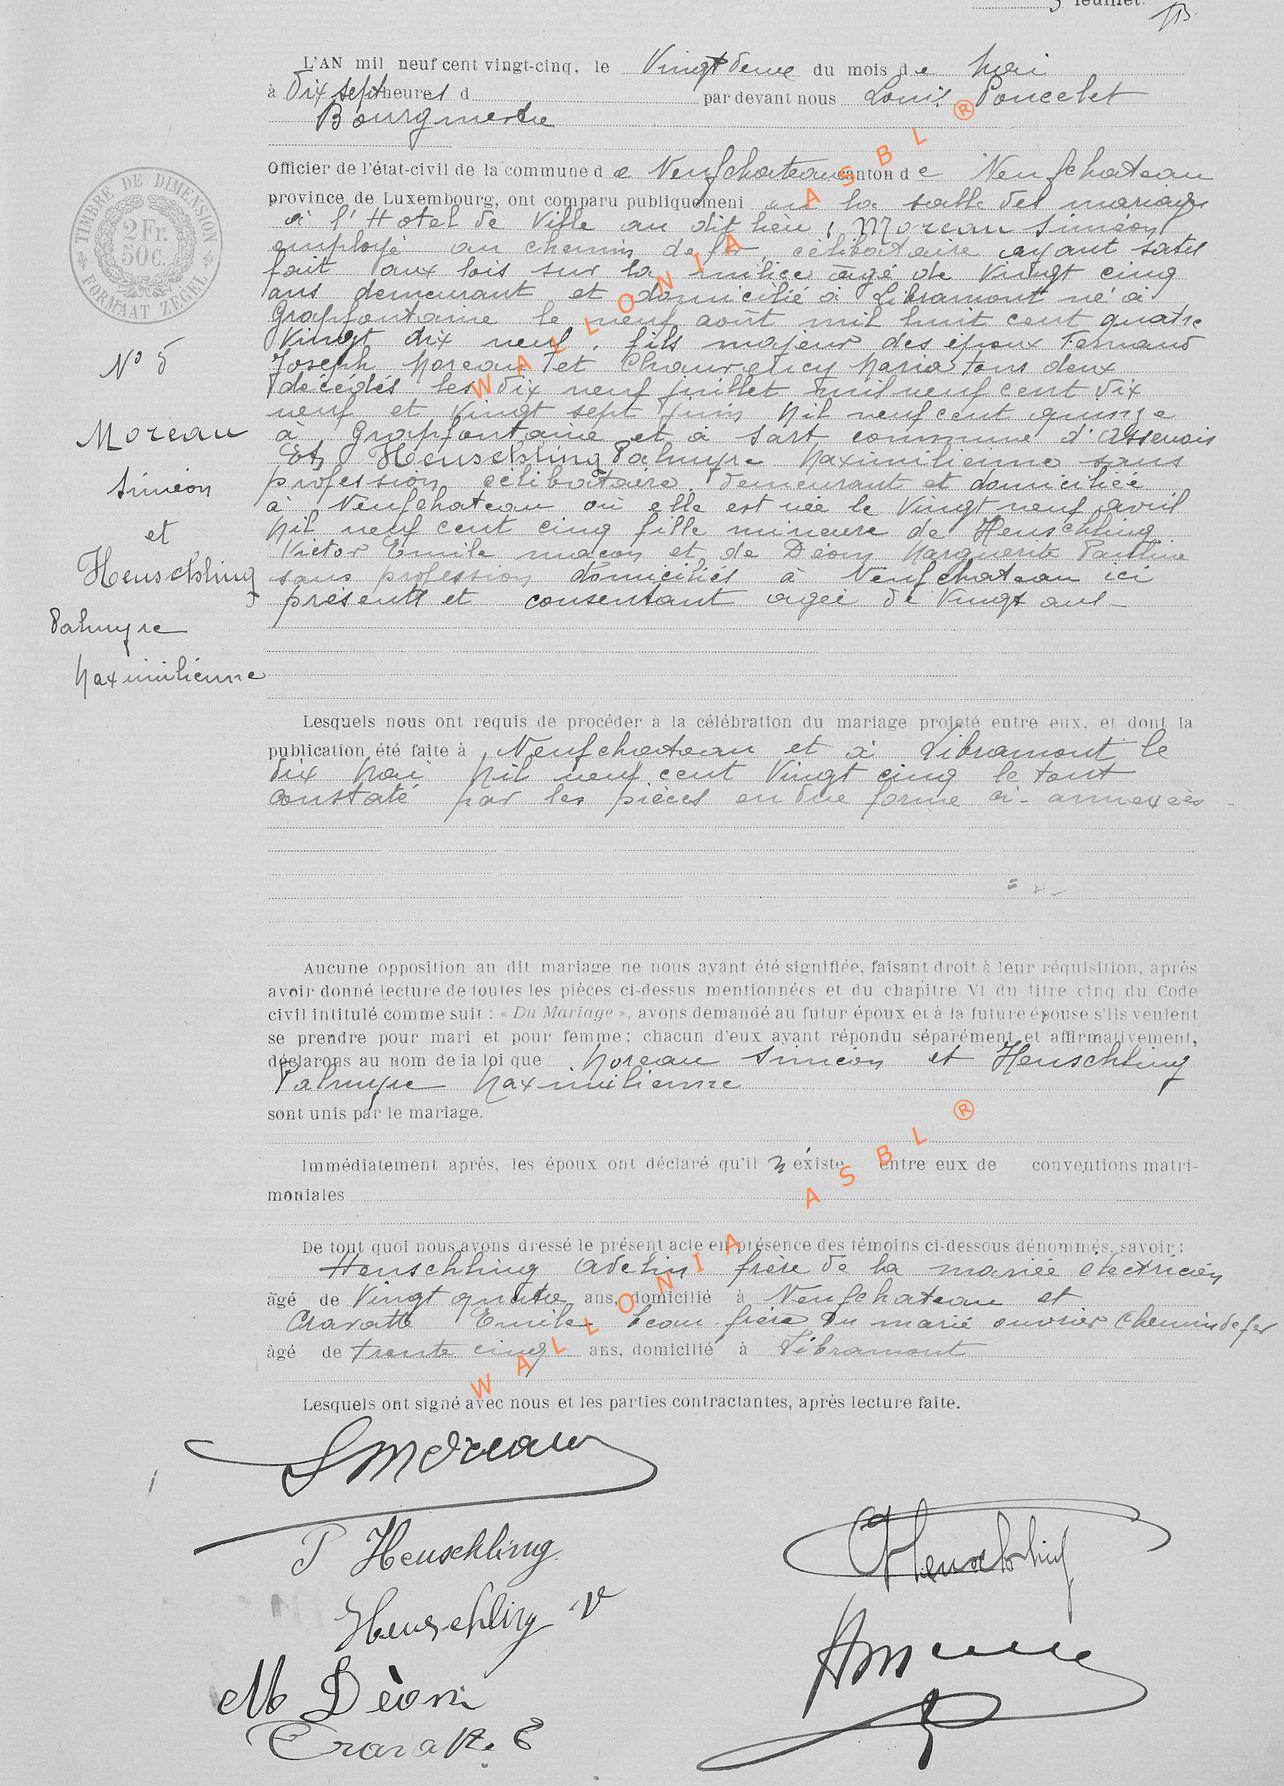 5 feuillet.
L'AN mil neuf cent vingt-cinq, le Vingt deux du mois de Mai
à Dix sept heures d par devant nous Louis Poncelet
Bourgmestre
Officier de l'état-civil de la commune de Neufchateau canton de Neufchateau
province de Luxembourg, ont comparu publiquement en la salle des mariages
à l'Hotel de Ville au dit lieu, Moreau Siméon
employé au chemin de fer célibataire ayant satis
fait aux lois sur la milice agé de Vingt cinq
ans demeurant et domicilié à Libramont né à
Grapfontaine le neuf août mil huit cent quatre
Vingt dix neuf, fils majeur des époux Fernand
Joseph Moreau et Chauvency Maria tous deux
décédés les dix neuf juillet mil neuf cent dix
neuf et Vingt sept juin Mil neuf cent quinze
à Grapfontaine et à Sart commune d'Assenois
Et Heuschling Palmyre Maximilienne sans
profession célibataire, demeurant et domiciliée
à Neufchateau où elle est née le Vingt neuf avril
Mil neuf cent cinq fille mineure de Heuschling
Victor Emile maçon et de Déom Marguerite Pauline
sans profession domiciliés à Neufchateau ici
présents et consentant agée de Vingt ans
TIMBRE DE DIMENSION
2 Fr.
50 c.
FORMAAT ZEGEL
No 5
Moreau
Siméon
et
Heuschling
Palmyre
Maximilienne
Lesquels nous ont requis de procéder à la célébration du mariage projeté entre eux, et dont la
publication été faite à Neufchateau et à Libramont le
dix Mai Mil neuf cent Vingt cinq le tout
constaté par les pièces en due forme ci-annexées
Aucune opposition au dit mariage ne nous ayant été signifiée, faisant droit à leur réquisition, après
avoir donné lecture de toutes les pièces ci-dessus mentionnées et du chapitre VI du titre cinq du Code
civil intitulé comme suit : « Du Mariage », avons demandé au futur époux et à la future épouse s'ils veulent
se prendre pour mari et pour femme; chacun d'eux ayant répondu séparément et affirmativement,
déclarons au nom de la loi que Moreau Siméon et Heuschling
Palmyre Maximilienne
sont unis par le mariage.
Immédiatement après, les époux ont déclaré qu'il n'existe entre eux de conventions matri-
moniales
De tout quoi nous avons dressé le présent acte en présence des témoins ci-dessous dénommés, savoir :
Heuschling Adelin frère de la mariée électricien
âgé de Vingt quatre ans, domicilié à Neufchateau et
Cravatte Emile beau-frère du marié ouvrier Chemin de fer
âgé de trente cinq ans, domicilié à Libramont
Lesquels ont signé avec nous et les parties contractantes, après lecture faite.
S Moreau
P Heuschling
Heuschling
Heuschling V
M Déom
Cravatte E
WALLONIA ASBL ®
WALLONIA ASBL ®